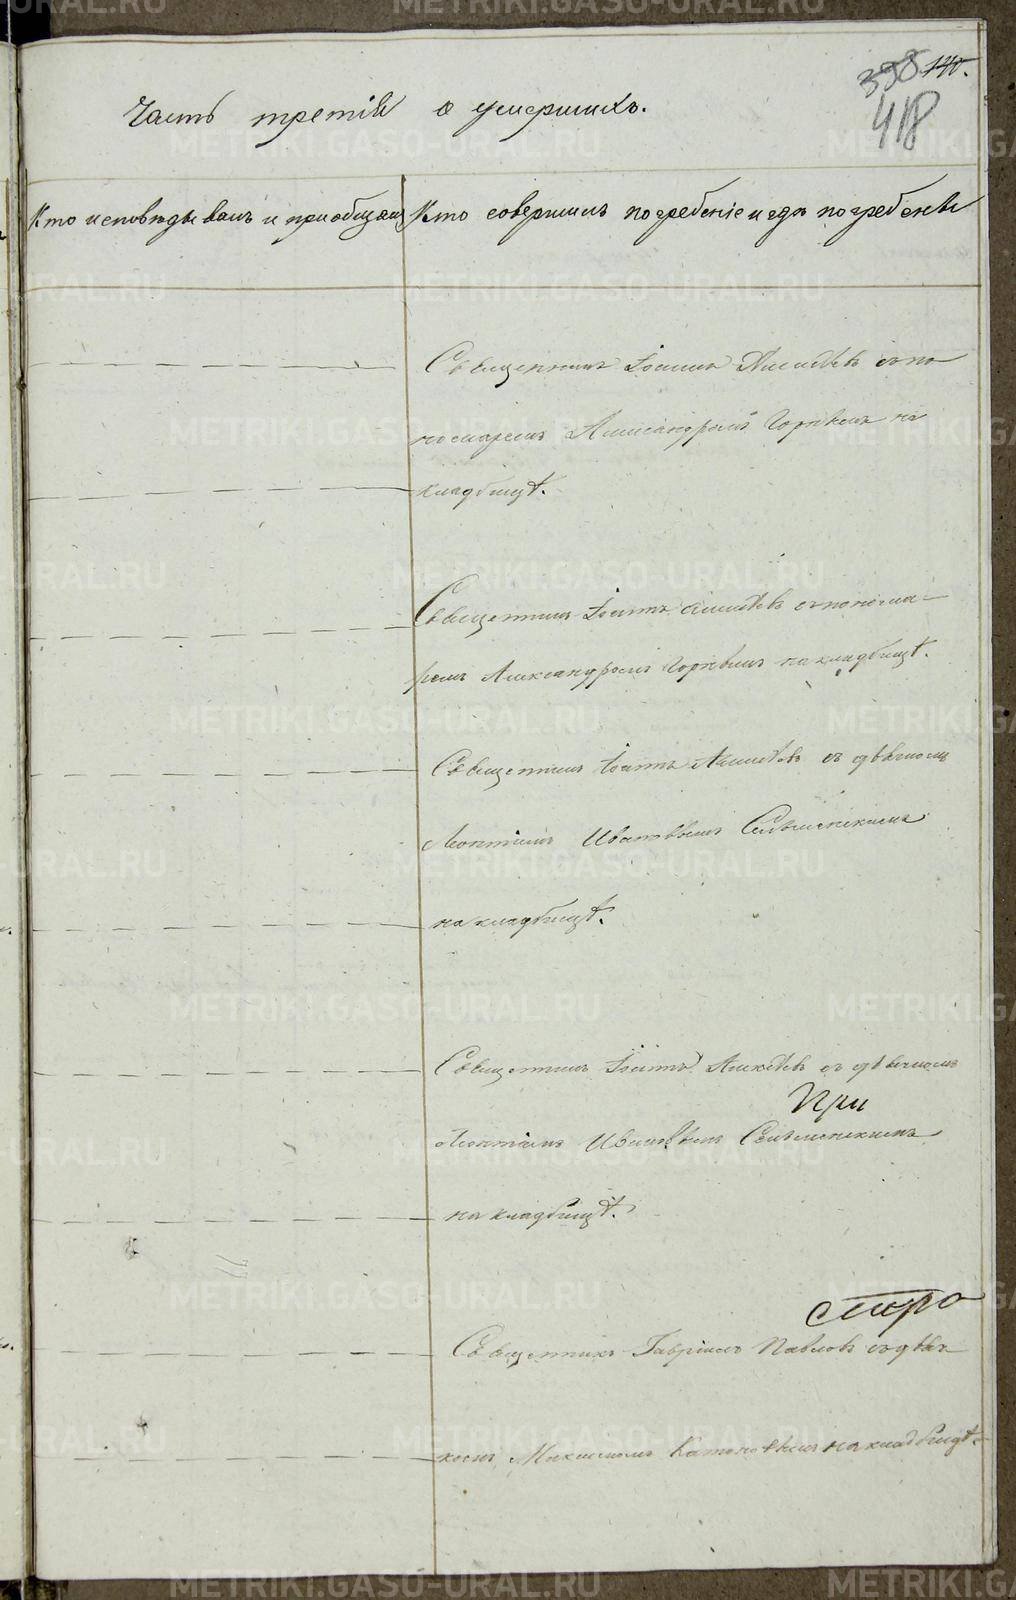 398 140.
418
Часть третія о умершихъ.
Кто исповѣдывалъ и пріобщалъ
Кто совершилъ погребеніе и гдѣ погребены
Священникъ Іоаннъ Алексѣевъ съ по
номаремъ Александромъ на
кладбищѣ.
Священникъ Іоаннъ Алексѣевъ съ понома-
ремъ Александромъ на кладбищѣ.
Священникъ Іоаннъ Алексѣевъ съ дьячкомъ
Леонтіемъ Ивановымъ
на кладбищѣ.
Священникъ Іоаннъ Алексѣевъ съ дьячкомъ
При
Леонтіемъ Ивановымъ
на кладбищѣ.
Священникъ Гавріилъ Павловъ съ дьяч
комъ Максимомъ на кладбищѣ.
METRIKI.GASO-URAL.RU